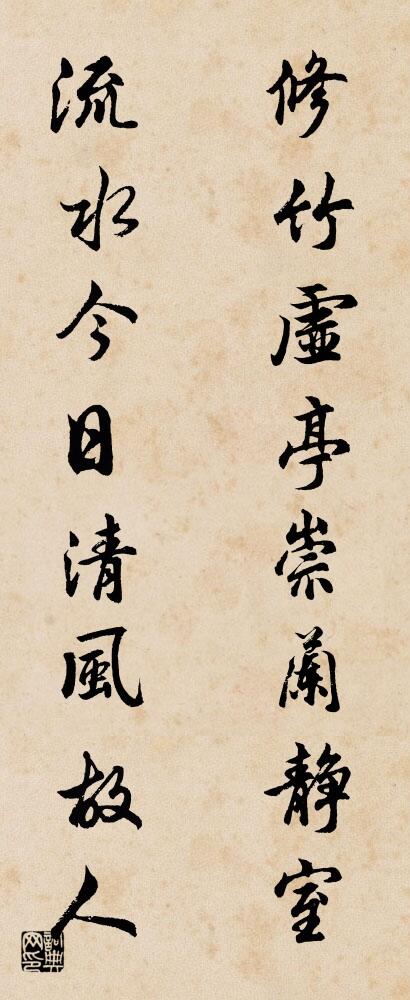 修竹虛亭崇蘭静室
流水今日清風故人